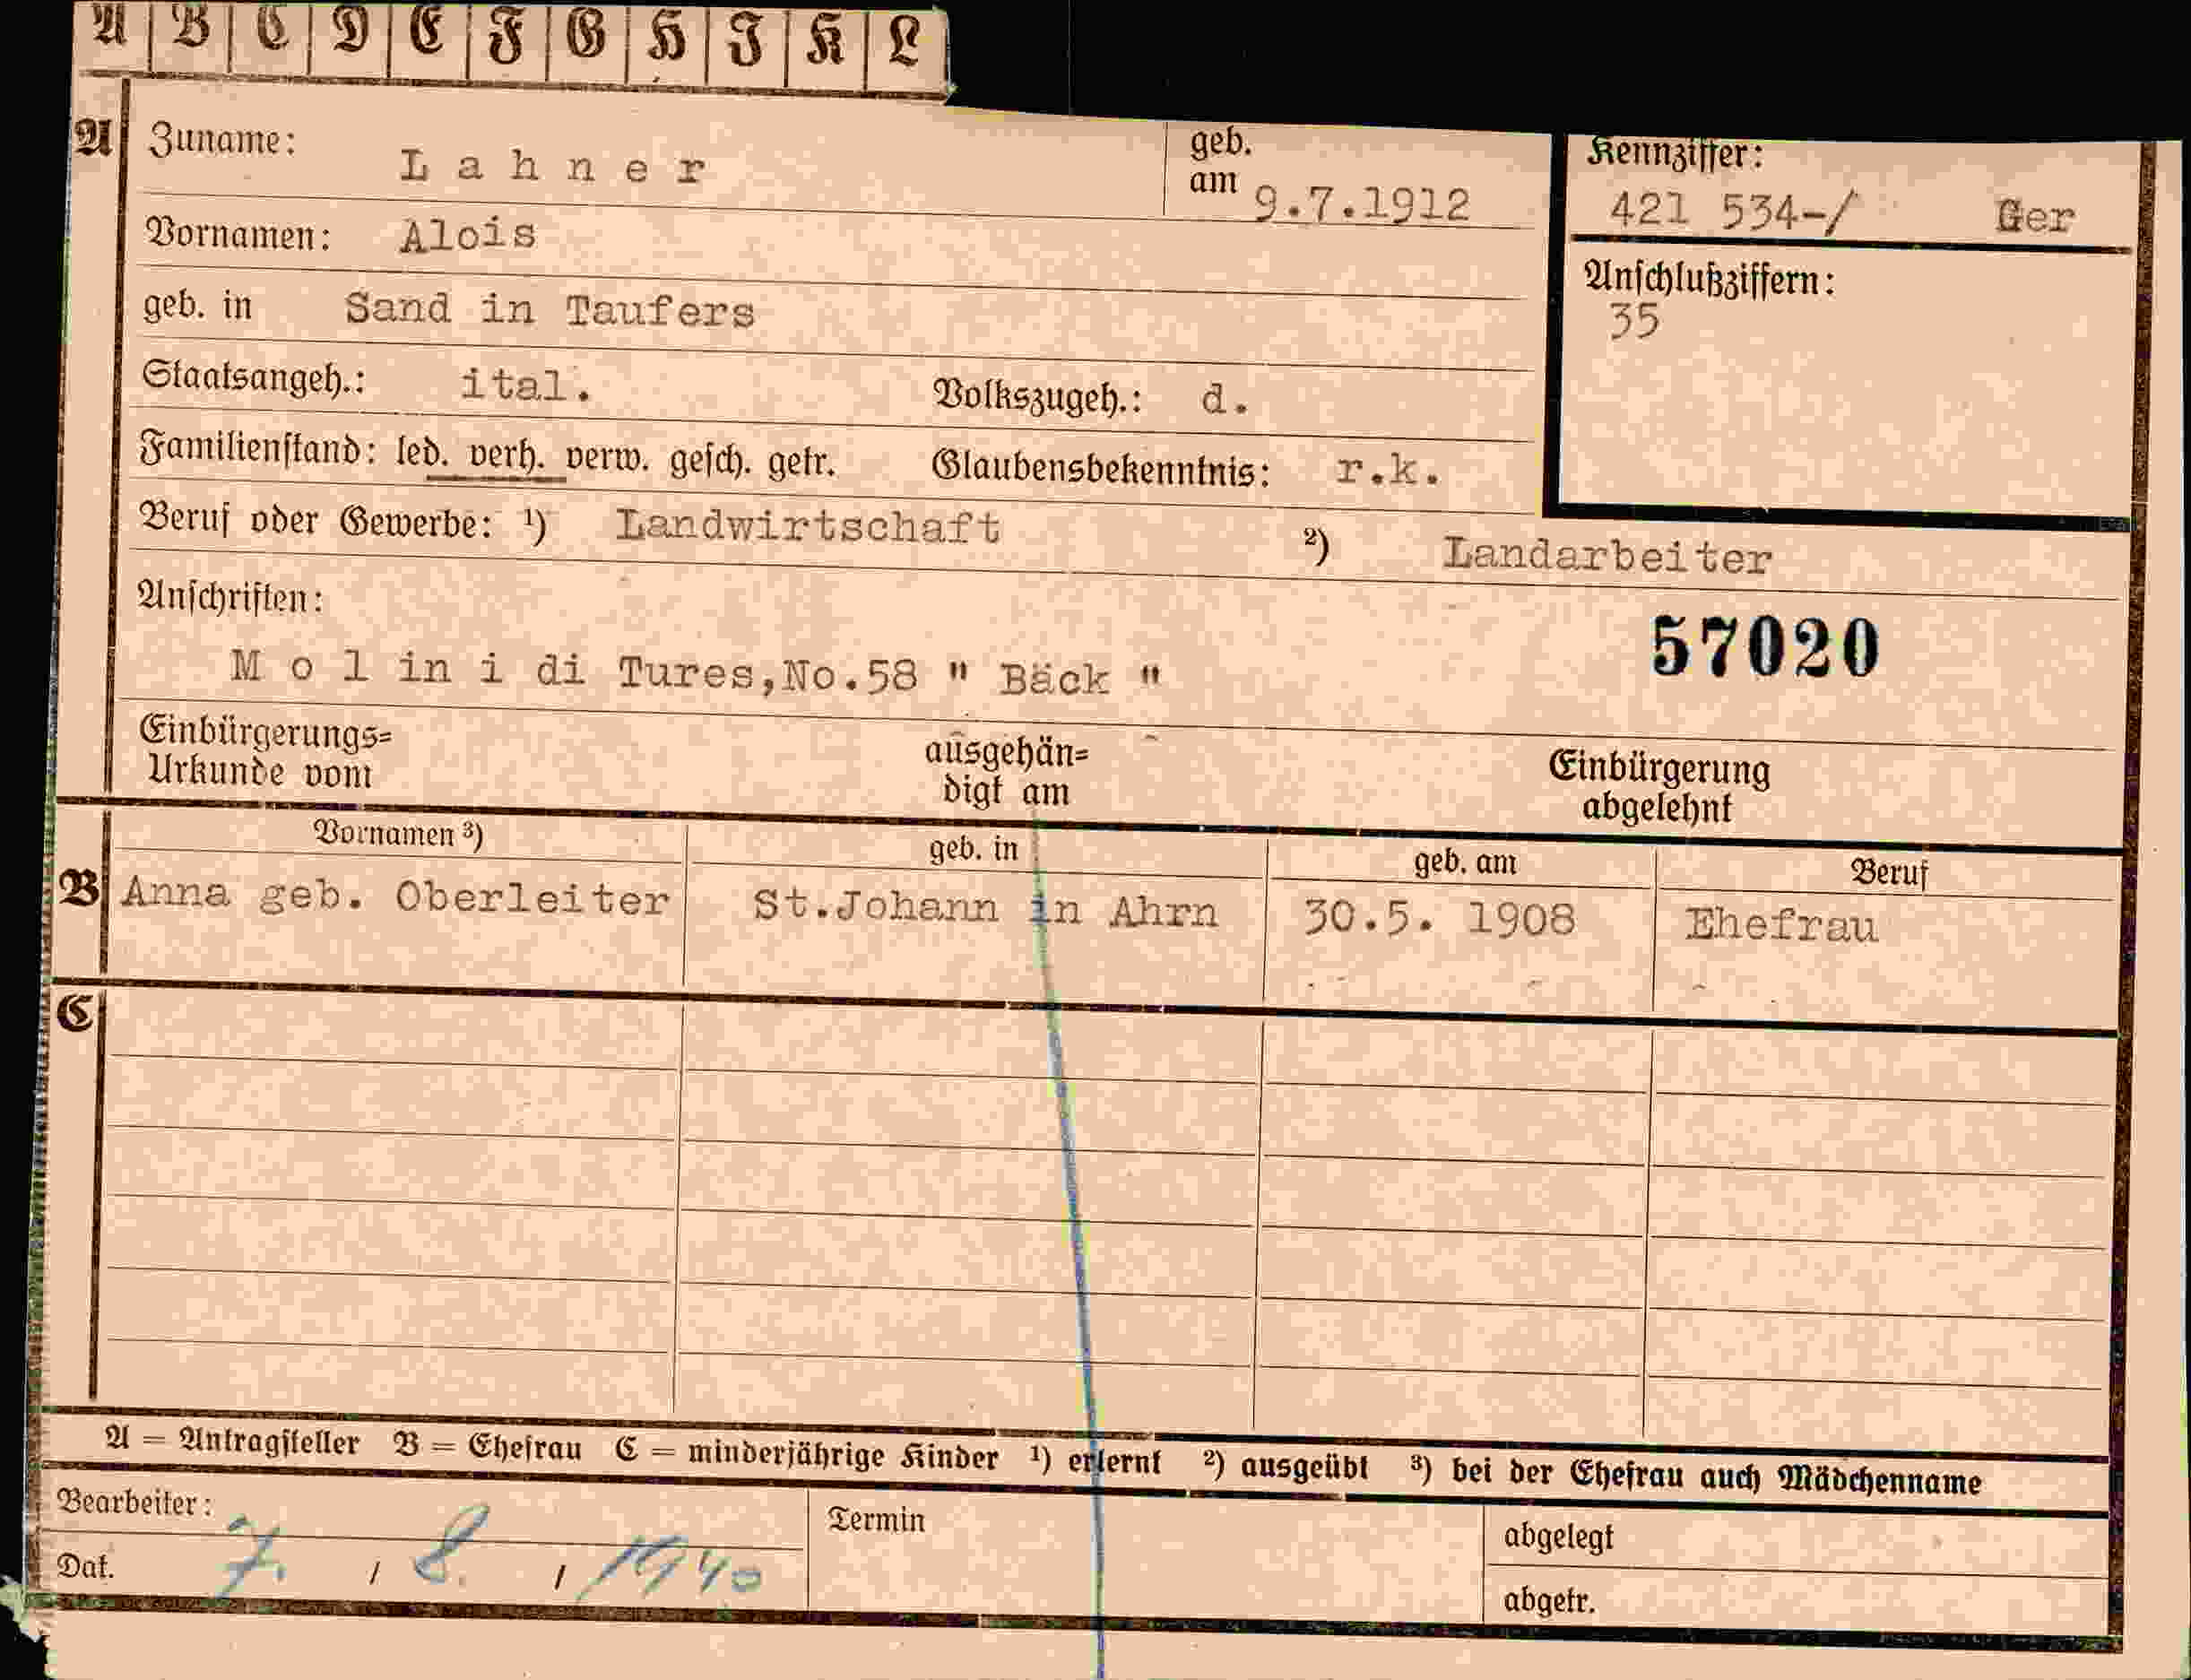 A B C D E F G H I K L
A Zuname: Lahner geb. am 9.7.1912
Kennziffer:
421 534-/ Ger
Vornamen: Alois
Anschlußziffern:
35
geb. in Sand in Taufers
Staatsangeh.: ital. Volkszugeh.: d.
Familienstand: led. verh. verw. gesch. getr. Glaubensbekenntnis: r.k.
Beruf oder Gewerbe: ¹) Landwirtschaft ²) Landarbeiter
Anschriften:
57020
M o l in i di Tures,No.58 " Bäck "
Einbürgerungs=
Urkunde vom
ausgehän=
digt am
Einbürgerung
abgelehnt
Vornamen ³) geb. in geb. am Beruf
B Anna geb. Oberleiter St.Johann in Ahrn 30.5. 1908 Ehefrau
C
A = Antragsteller B = Ehefrau C = minderjährige Kinder ¹) erlernt ²) ausgeübt ³) bei der Ehefrau auch Mädchenname
Bearbeiter:
Dat. 7. / 8. / 1940
Termin
abgelegt
abgetr.